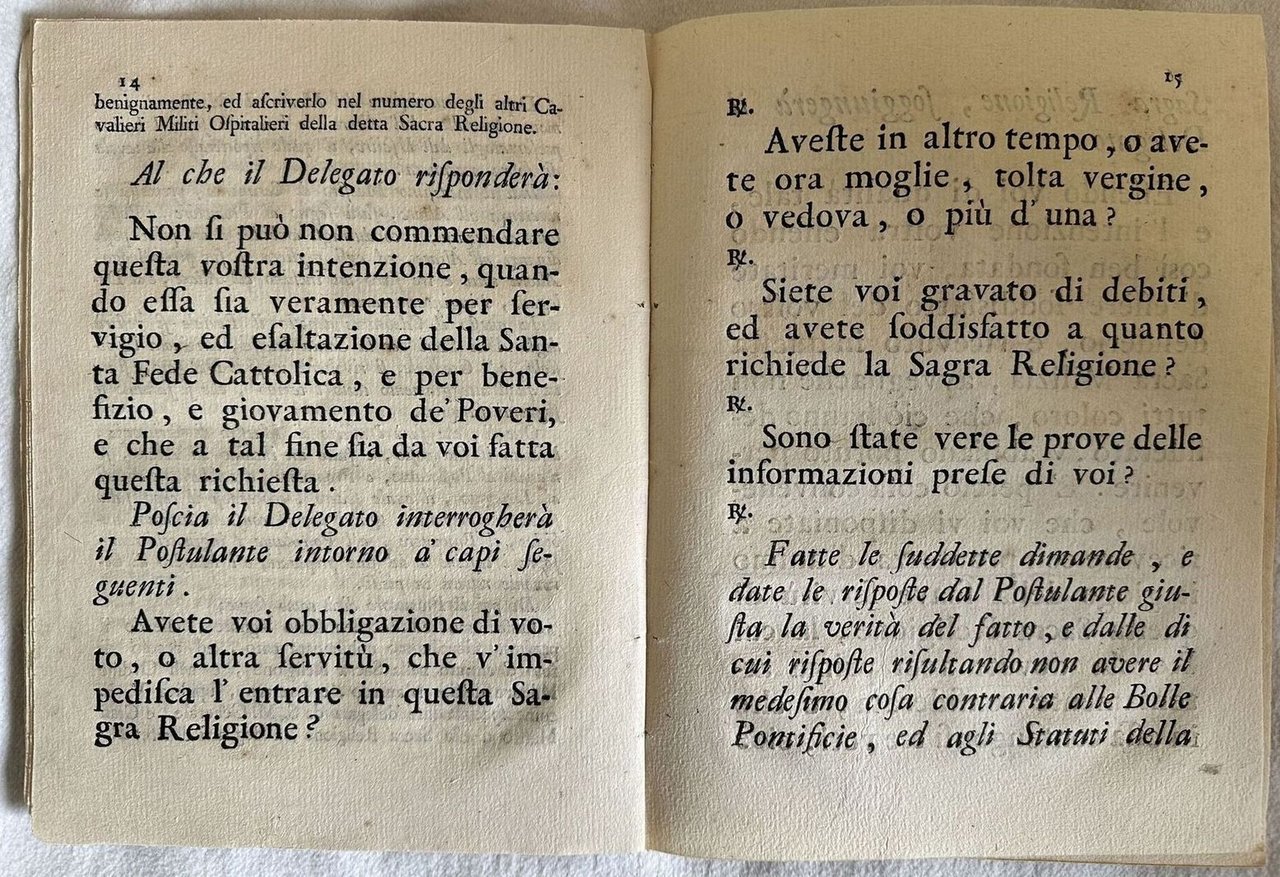 14
benignamente, ed aſcriverlo nel numero degli altri Ca-
valieri Militi Oſpitalieri della detta Sacra Religione.
Al che il Delegato riſponderà:
Non ſi può non commendare
queſta voſtra intenzione, quan-
do eſſa ſia veramente per ſer-
vigio, ed eſaltazione della San-
ta Fede Cattolica, e per bene-
fizio, e giovamento de' Poveri,
e che a tal fine ſia da voi fatta
queſta richieſta.
Poſcia il Delegato interrogherà
il Poſtulante intorno a' capi ſe-
guenti.
Avete voi obbligazione di vo-
to, o altra ſervitù, che v' im-
pediſca l' entrare in queſta Sa-
gra Religione?
15
℟.
Aveſte in altro tempo, o ave-
te ora moglie, tolta vergine,
o vedova, o più d' una?
℟.
Siete voi gravato di debiti,
ed avete ſoddisfatto a quanto
richiede la Sagra Religione?
℟.
Sono ſtate vere le prove delle
informazioni preſe di voi?
℟.
Fatte le ſuddette dimande, e
date le riſpoſte dal Poſtulante giu-
ſta la verità del fatto, e dalle di
cui riſpoſte riſultando non avere il
medeſimo coſa contraria alle Bolle
Pontificie, ed agli Statuti della